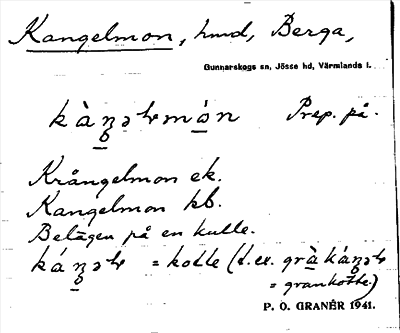 Kangelmon, hmd, Berga,
Gunnarskogs sn, Jösse hd, Värmlands l.
Prep. på.
Krångelmon ek.
Kangelmon kb.
Belägen på en kulle.
= kotte (t.ex.
= grankotte.)
P. O. GRANÉR 1941.